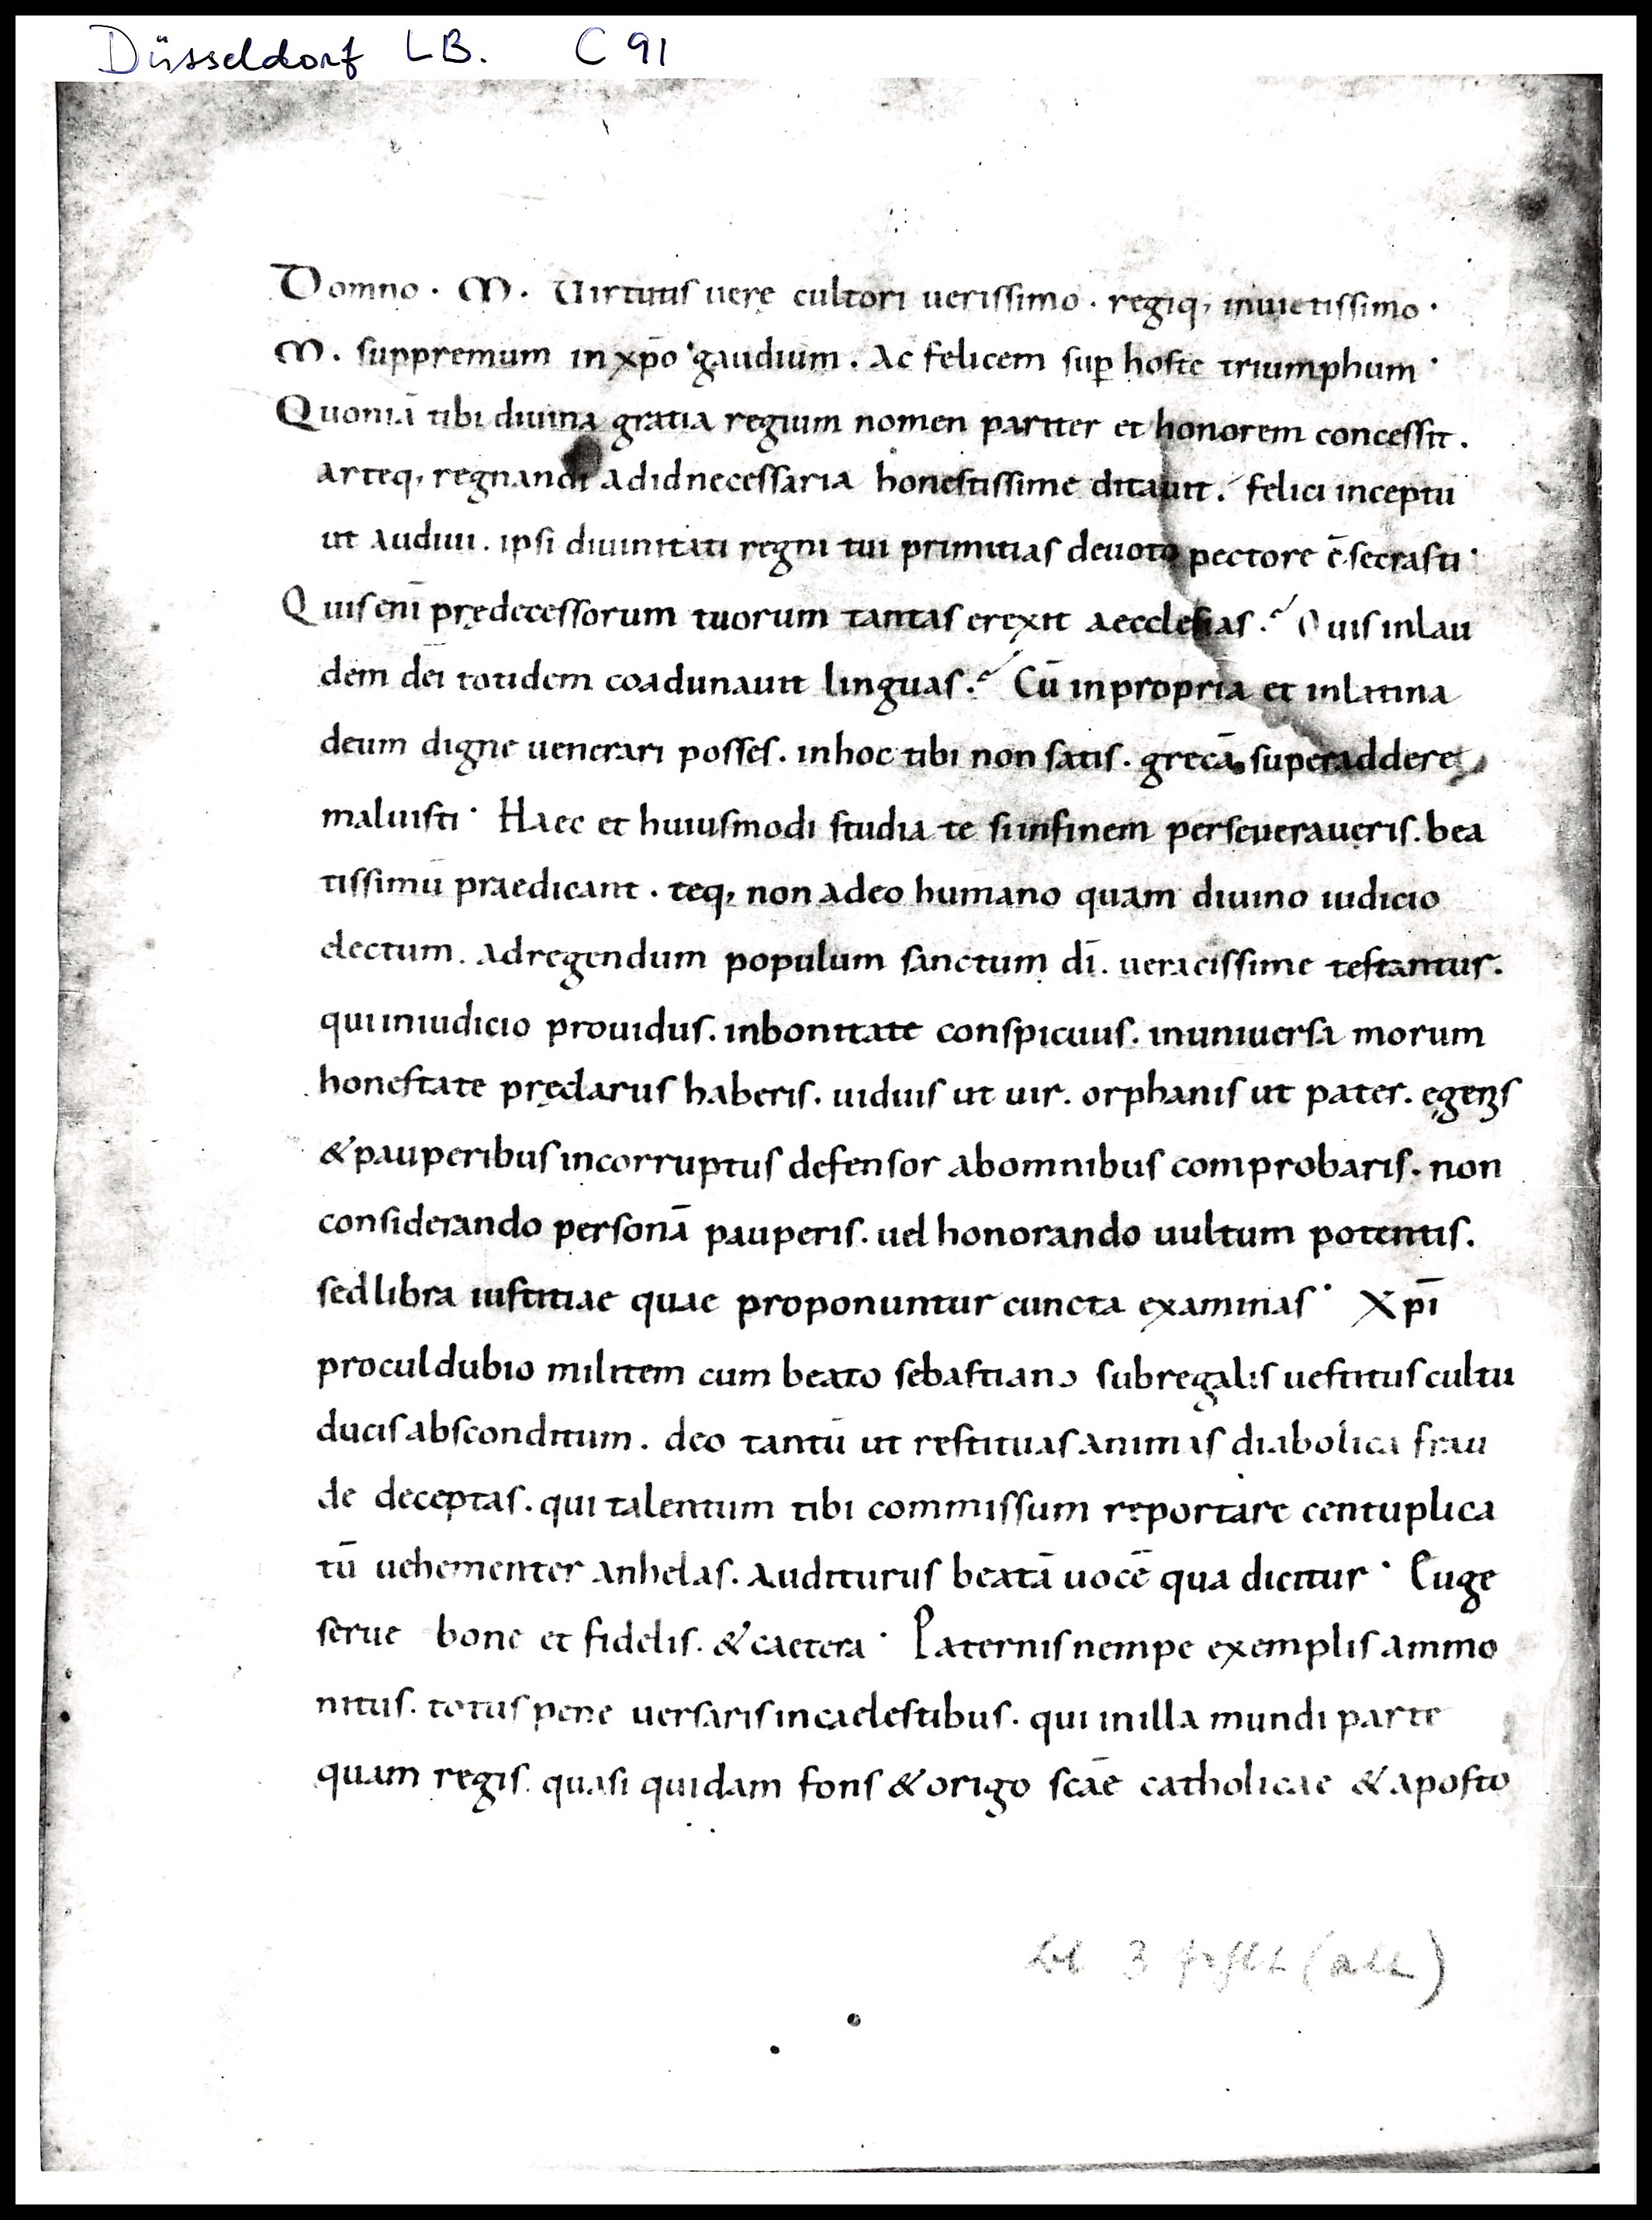 Düsseldorf LB. C 91
Domno · M · Uirtutis uere cultori uerissimo · regiq, inuictissimo ·
M · suppremum in xp̄o gaudium . Ac felicem sup̱ hoste triumphum ·
Quoniā tibi diuina gratia regium nomen pariter et honorem concessit .
arteq, regnandi adidnecessaria honestissime ditauit . felici inceptu
ut audiui . ipsi diuinitati regni tui primitias deuoto pectore c̄secrasti ·
Quisenī prędecessorum tuorum tantas erexit aecclesias .? Quis inlau
dem dēi totidem coadunauit linguas .? Cū inpropria et inlatina
deum digne uenerari posses . inhoc tibi non satis . grecā superaddere
maluisti · Haec et huiusmodi studia te siinfinem perseueraueris . bea
tissimū praedicant . teq, non adeo humano quam diuino iudicio
electum . adregendum populum sanctum dī . ueracissime testantur .
quiiniudicio prouidus . inbonitate conspicuus . inuniuersa morum
honestate pręclarus haberis . uiduis ut uir . orphanis ut pater . egenis
&pauperibus incorruptus defensor abomnibus comprobaris . non
considerando personā pauperis . uel honorando uultum potentis .
sedlibra iustitiae quae proponuntur cuncta examinas · Xpī
proculdubio militem cum beato sebastiano subregalis uestitus cultu
ducis absconditum . deo tantū ut restituas animas diabolica frau
de deceptas . qui talentum tibi commissum reportare centuplica
tū uehementer anhelas . auditurus beatā uocē qua dicitur · Euge
serue bone et fidelis . &caetera · Paternis nempe exemplis ammo
nitus . totus pene uersaris incaelestibus . qui inilla mundi parte
quam regis . quasi quidam fons &origo scāe catholicae &aposto
3 fehlt (alt)